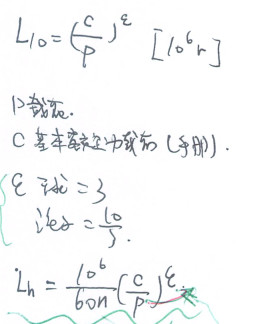 L₁₀ = (C/P)^ε [10⁶r]
P 载荷.
C 基本额定动载荷 (手册).
ε 球 = 3
滚子 = 10/3.
Lh = 10⁶/60n (C/P)^ε.